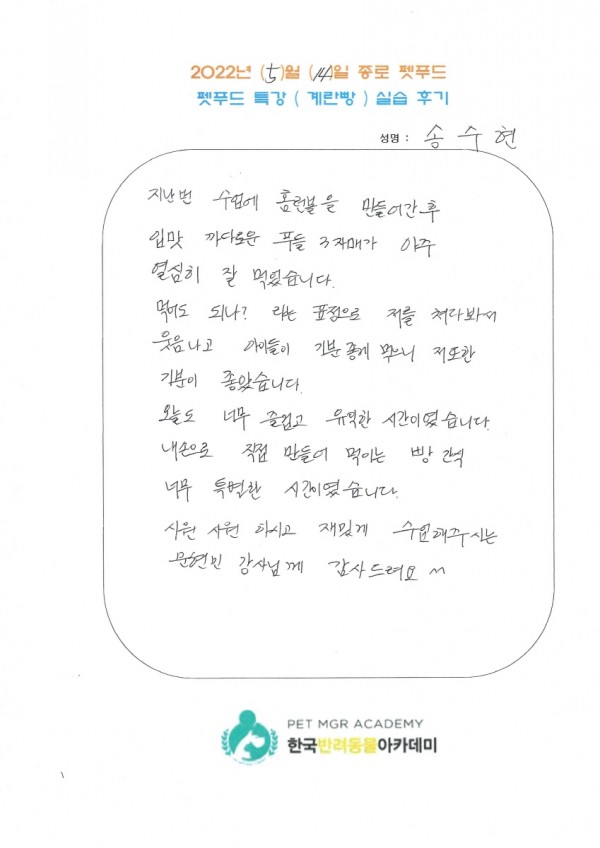 2022년 (5)월 (14)일 종로 펫푸드
펫푸드 특강 ( 계란빵 ) 실습 후기
성명 : 송수현
지난번 수업에 홈런볼을 만들어간후
입맛 까다로운 푸들 3자매가 아주
열심히 잘 먹었습니다.
먹어도 되나? 라는 표정으로 저를 쳐다봐서
웃음나고 아이들이 기분좋게 먹으니 저또한
기분이 좋았습니다.
오늘도 너무 즐겁고 유익한 시간이였습니다.
내손으로 직접 만들어 먹이는 빵 간식
너무 특별한 시간이였습니다.
시원 시원 하시고 재밌게 수업해주시는
문현민 강사님께 감사드려요 ~
PET MGR ACADEMY
한국반려동물아카데미